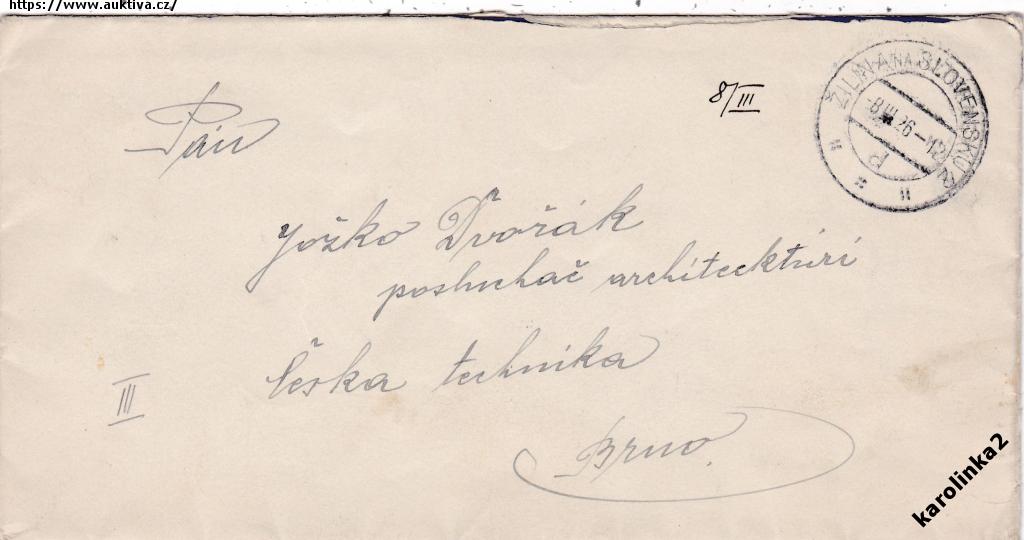 https://www.auktiva.cz/
8/III
ŽILINA NA SLOVENSKU
-8.III.26-12
Pán
Jožko Dvořák
poslucháč architecktúri
česka technika
III
Brno.
karolinka2